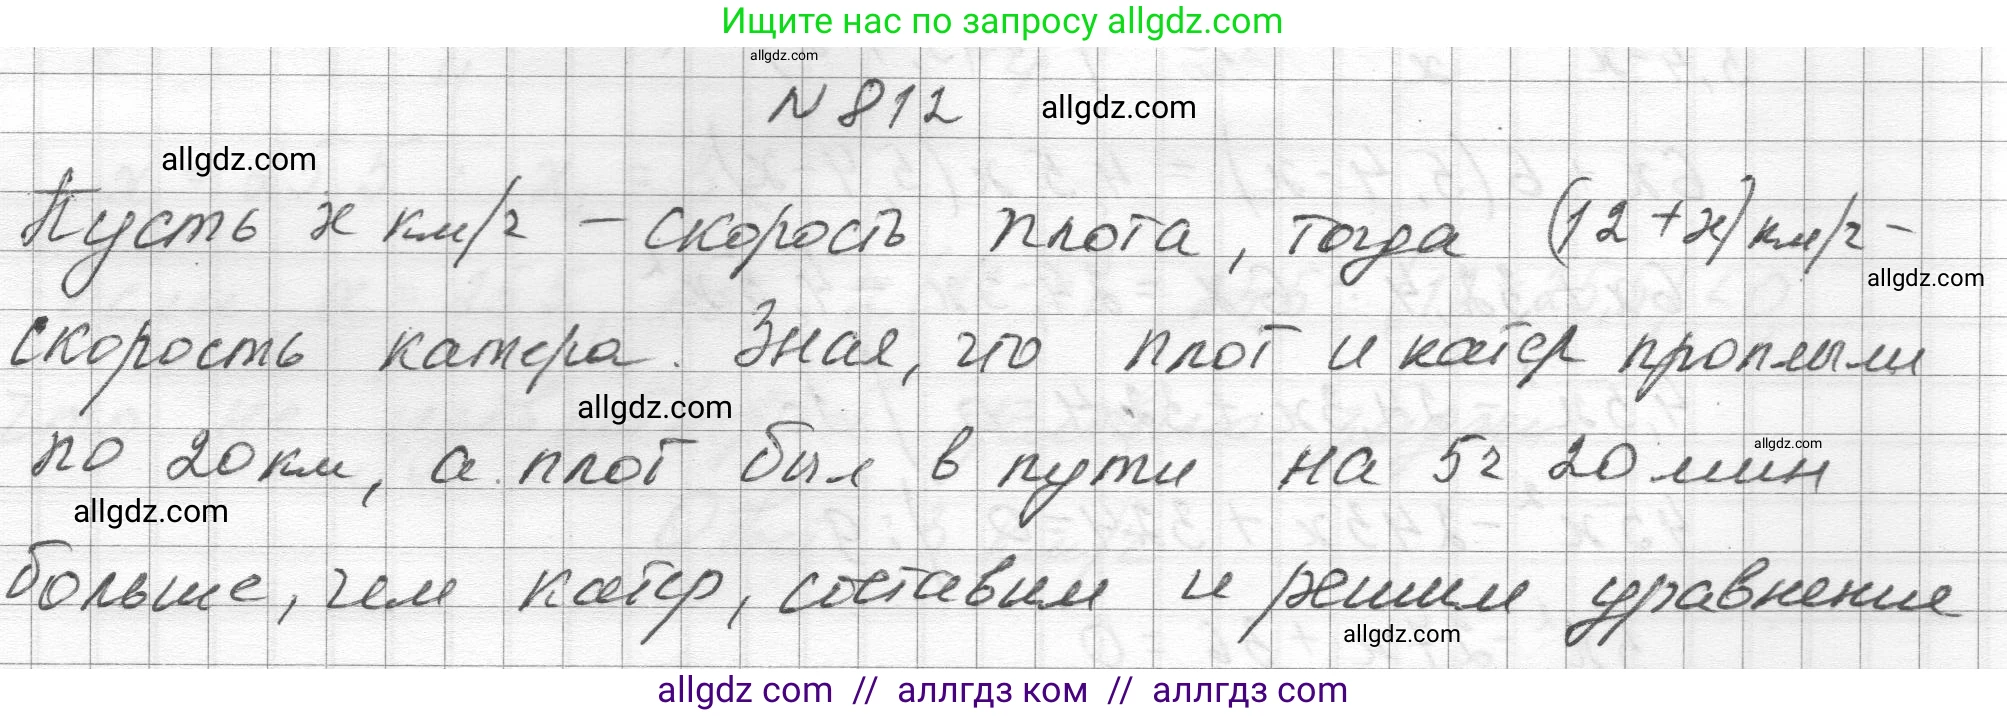 Ищите нас по запросу allgdz.com
allgdz.com
N 812 allgdz.com
allgdz.com
Пусть x км/ч – скорость плота, тогда (12+x) км/ч –
allgdz.com
скорость катера. Зная, что плот и катер проплыли
allgdz.com
по 20 км, а плот был в пути на 5 ч 20 мин
allgdz.com
allgdz.com
больше, чем катер, составим и решим уравнение
allgdz.com
allgdz com // аллгдз ком // аллгдз com